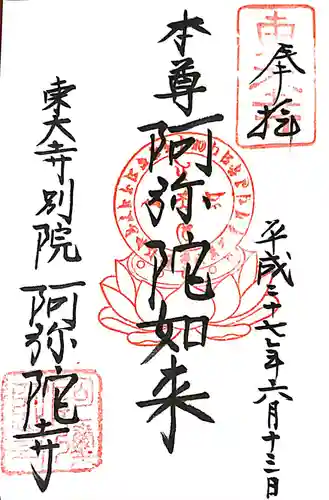 奉拝
平成二十七年六月十三日
本尊阿弥陀如来
東大寺別院阿弥陀寺